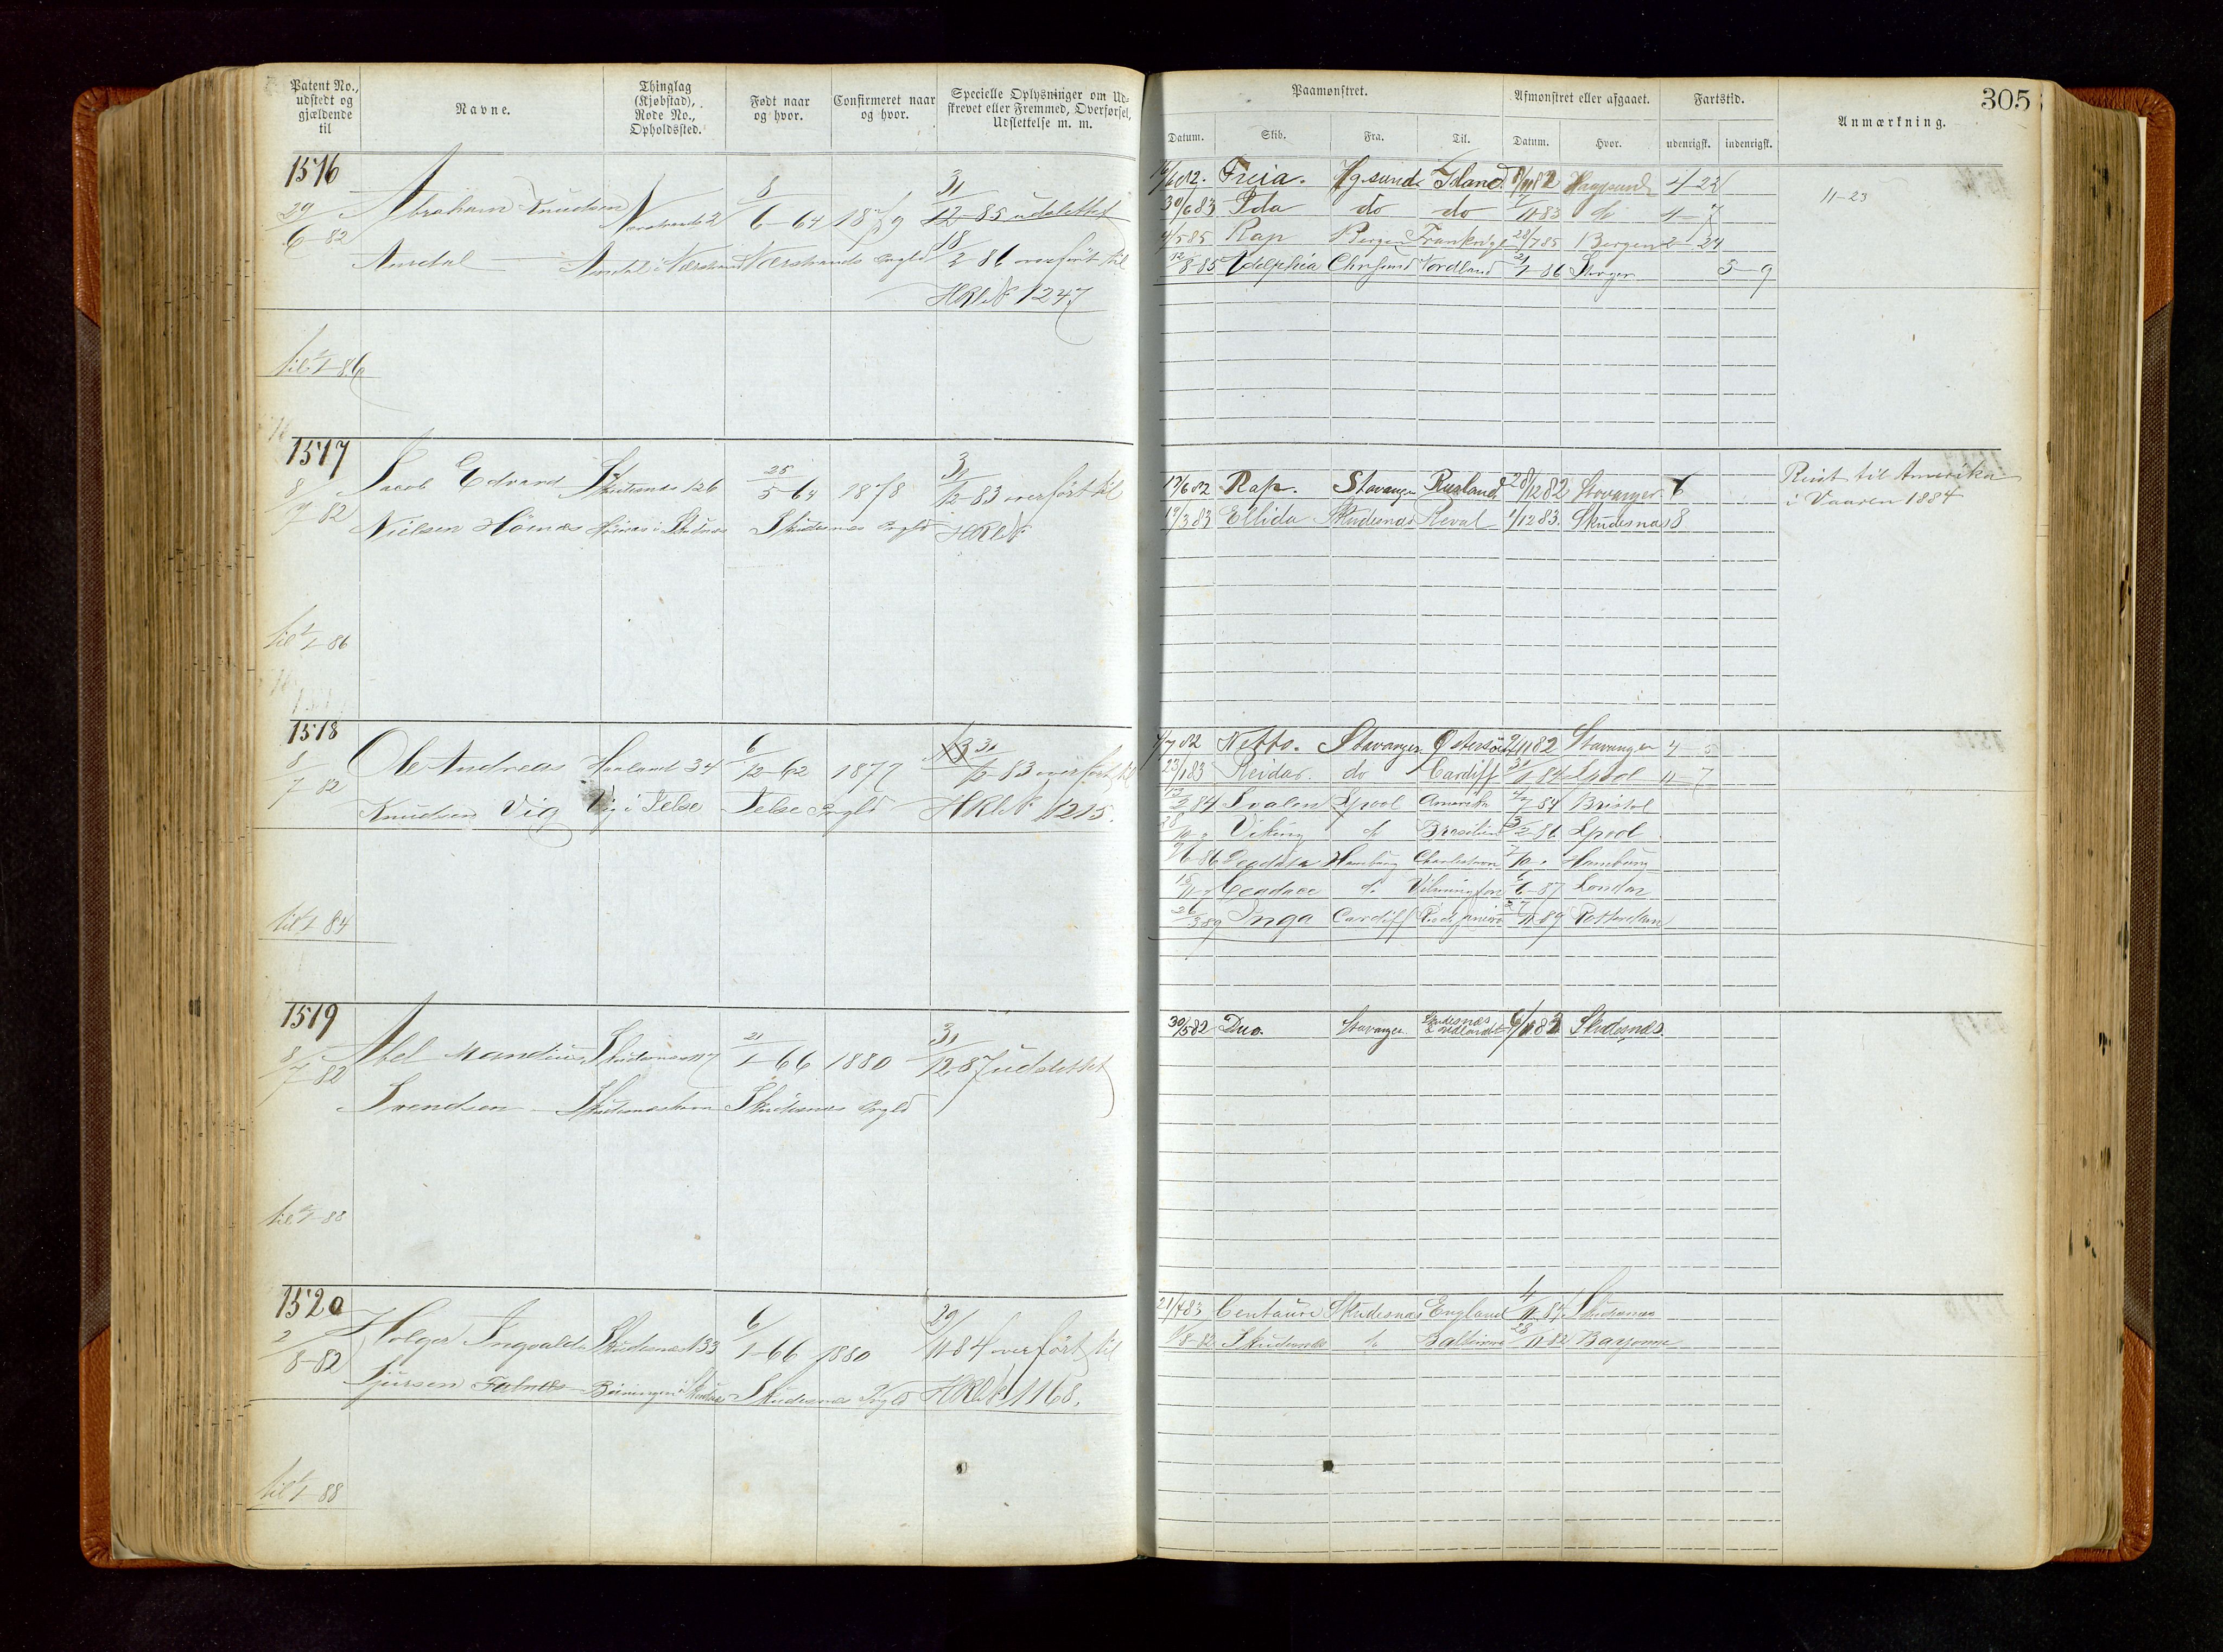 Patent No., udstedt og gjældende til
Navne.
Thinglag (Kjøbstad), Rode No., Opholdssted.
Født naar og hvor.
Confirmeret naar og hvor.
Specielle Oplysninger om Udskrevet eller Fremmed, Overførsel, Udslettelse m. m.
Paamønstret.
Afmønstret eller afgaaet.
Fartstid.
Anmærkning.
305
Datum. Skib. Fra. Til. Datum. Hvor. udenrigsk. indenrigsk.
1516
29/6-82 Abraham Knudsen Nærstrands 2 8/6-64 1879 31/12-85 udslettet
Amdal Amdal i Nærstrand Nærstrands Prgld 18/2-86 overført til
HRl. No 1247
til 1/1-86
16/6 82. Freia. Hgsund Island 82 Haugsund 4-22
11-23
30/6 83 Ida do do /11 83 do 4-7
4/5 85 Rap Bergen Frankrige 28/7 85 Bergen 2-24
12/8-85 Adelphia Chrsund Nordland 21/1-86 Stvgr 5-9
1517
8/7 82 Jacob Edvard Skudesnæs 126 25/5 64 1878 31/12-83 overført til
Nielsen Hömæs Skudesnæs Prgld HRl. No
til 1/1-86
17/6 82 Rap. Stavanger Rusland 28/12 82 Stavanger 6
Reist til Amerika
i Vaaren 1884
19/3 83 Ellida Skudesnæs Reval 1/12 83. Skudesnæs 8
1518
8/7 82 Ole Andreas Haaland 34 6/12-62 1877 31/12 83 overført til
Knudsen Vig Vig i Jelse Jelse Prgld HRl. No 1215.
til 1/1 84
4/7 82 Netto. Stavanger Østersöen 9/11 82 Stavanger 4-5
23/1 83 Reidar. do Cardiff 31/1 84 Lpool 11-7
12/2 84 Svalen Lpool Amerika 84 Bristol
28/10 " Viking do Brasilien 3/2-86 Lpool
/6-86 Hamburg Charlestown 7/10 " Hamburg
15/11 " do Vilmington 6/6-87 London
26/3 89 Inga Cardiff Rio de Janeiro 27/11 89 Rotterdam
1519
8/7-82 Abel Mandius Skudesnæs 117 21/1-66 1880 31/12-87 udslettet
Svendsen Skudesnæshavn Skudesnæs Prgld
til 1/1-88
30/5 82 Duo. Stavanger Skudesnæs 6/11 82 Skudesnæs.
1520
2/8-82 Holger Ingvald Skudesnæs 133 6/1-66 1880 29/11 84 overført til
Sjursen Falnæs Skudesnæs Prgld HRl. No 1168.
til 1/1 88
21/7 83 Centaur Skudesnæs England 4/11-84 Skudesnæs
1/8-82 Skudesnæs do Baltimore 28/11 82 Bayonne